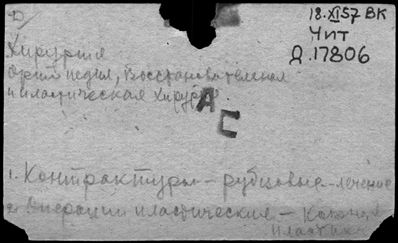 18.XI57 ВК
Чит
Д.17806
Хирургия
Ортопедия, Восстановительная
и пластическая хирург.
АС
1. Контрактуры - рубцовые - лечение
2 Операции пластические - Кожная
пластика